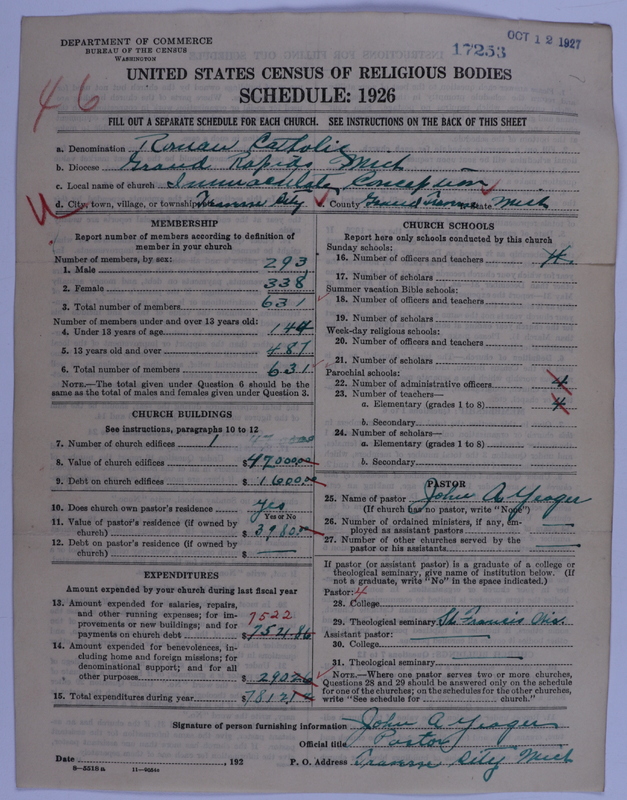 DEPARTMENT OF COMMERCE
BUREAU OF THE CENSUS
WASHINGTON
17253
OCT 12 1927
UNITED STATES CENSUS OF RELIGIOUS BODIES
SCHEDULE: 1926
46
FILL OUT A SEPARATE SCHEDULE FOR EACH CHURCH. SEE INSTRUCTIONS ON THE BACK OF THIS SHEET
a. Denomination Roman Catholic
b. Diocese Grand Rapids Mich
c. Local name of church Immaculate Conception
d. City, town, village, or township Traverse City e. County Grand Traverse State Mich
MEMBERSHIP
Report number of members according to definition of
member in your church
Number of members, by sex:
1. Male 293
2. Female 338
3. Total number of members 631
Number of members under and over 13 years old:
4. Under 13 years of age 144
5. 13 years old and over 487
6. Total number of members 631
NOTE.—The total given under Question 6 should be the
same as the total of males and females given under Question 3.
CHURCH BUILDINGS
See instructions, paragraphs 10 to 12
7. Number of church edifices 1
8. Value of church edifices $47000.00
9. Debt on church edifices $1600.00
10. Does church own pastor's residence yes
Yes or No
11. Value of pastor's residence (if owned by
church) $
12. Debt on pastor's residence (if owned by
church) $ —
EXPENDITURES
Amount expended by your church during last fiscal year
13. Amount expended for salaries, repairs,
and other running expenses; for im-
provements or new buildings; and for
payments on church debt $7521.86
7522
14. Amount expended for benevolences, in-
cluding home and foreign missions; for
denominational support; and for all
other purposes $290.26
15. Total expenditures during year $7812
CHURCH SCHOOLS
Report here only schools conducted by this church
Sunday schools:
16. Number of officers and teachers 4
17. Number of scholars
Summer vacation Bible schools:
18. Number of officers and teachers
19. Number of scholars
Week-day religious schools:
20. Number of officers and teachers
21. Number of scholars
Parochial schools:
22. Number of administrative officers 4
23. Number of teachers—
a. Elementary (grades 1 to 8) 4
b. Secondary
24. Number of scholars—
a. Elementary (grades 1 to 8)
b. Secondary
PASTOR
25. Name of pastor John A Yeager
(If church has no pastor, write "None")
26. Number of ordained ministers, if any, em-
ployed as assistant pastors —
27. Number of other churches served by the
pastor or his assistants —
If pastor (or assistant pastor) is a graduate of a college or
theological seminary, give name of institution below. (If
not a graduate, write "No" in the space indicated.)
Pastor: 4
28. College
29. Theological seminary St. Francis Wis.
Assistant pastor: —
30. College
31. Theological seminary —
NOTE.—Where one pastor serves two or more churches,
Questions 28 and 29 should be answered only on the schedule
for one of the churches; on the schedules for the other churches,
write "See schedule for ........ church."
Signature of person furnishing information John A Yeager
Official title Pastor
Date , 192 P. O. Address Traverse City Mich
8-5518a 11-9054